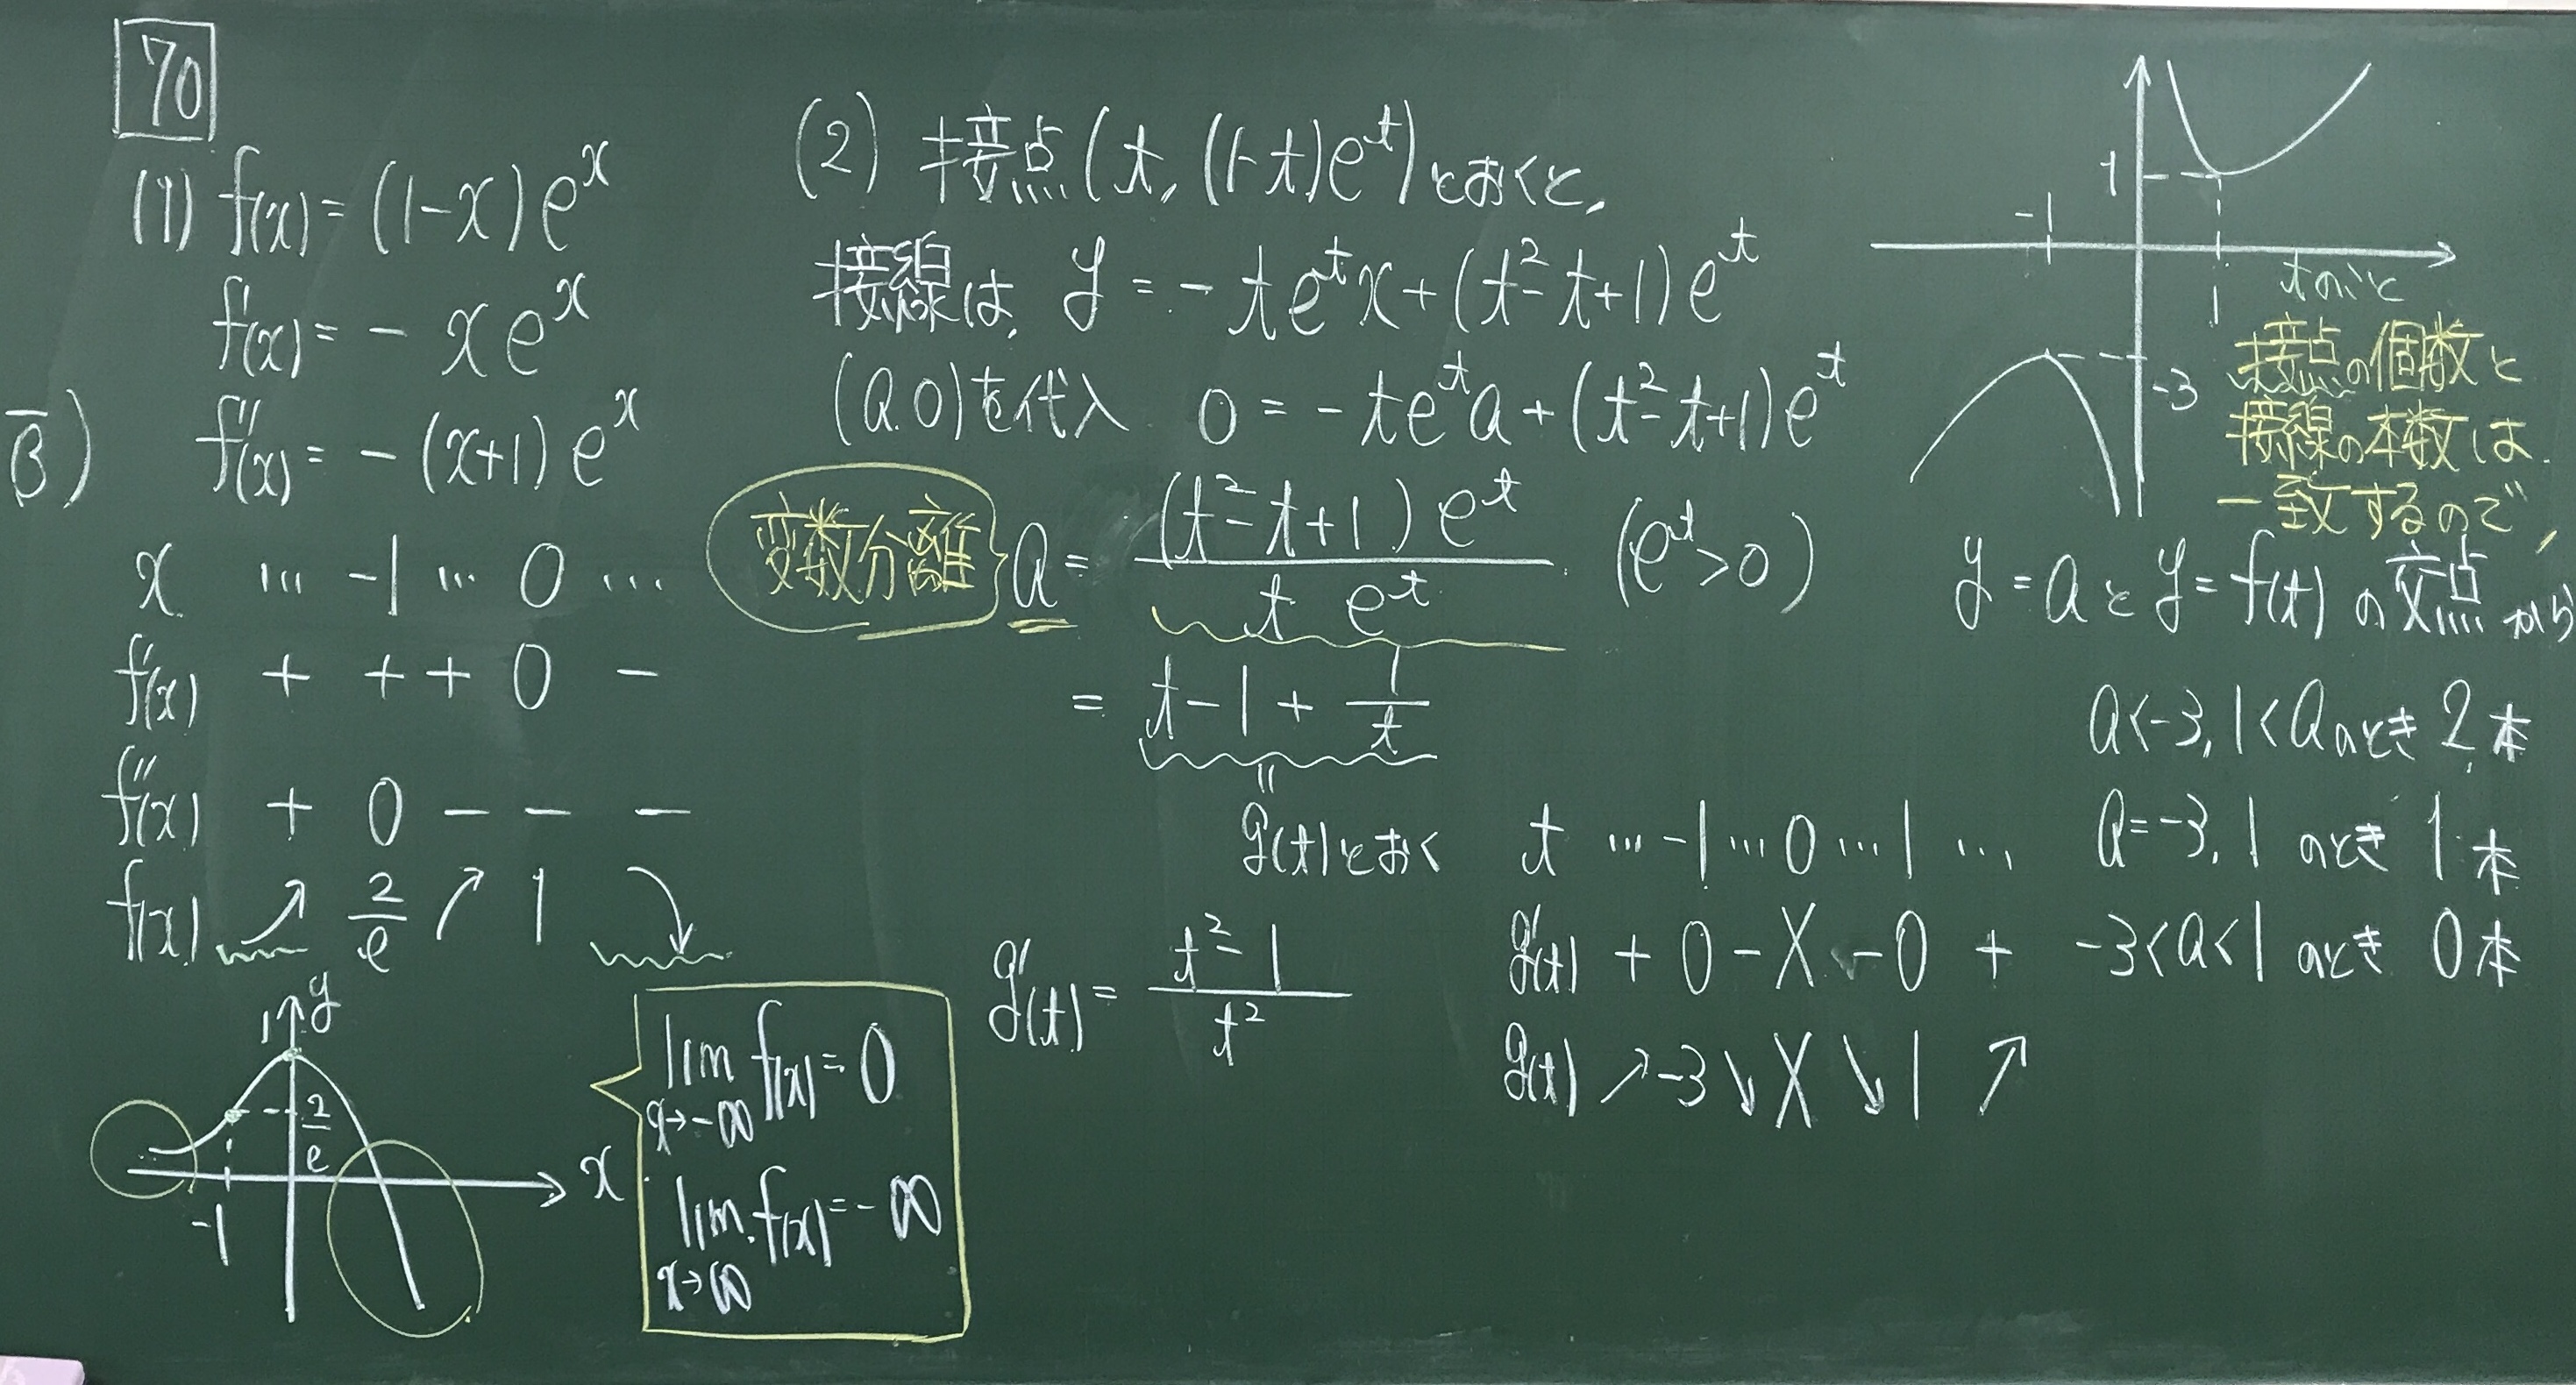 70
(1) f(x) = (1-x)e^x
f'(x) = - x e^x
f''(x) = - (x+1) e^x
β)
x … -1 … 0 …
f'(x) + + + 0 -
f''(x) + 0 - - -
f(x) ↗ 2/e ↗ 1 ↘
y
1
2/e
-1
x
lim x→-∞ f(x) = 0
lim x→∞ f(x) = -∞
(2) 接点(t, (1-t)e^t)とおくと,
接線は, y = - te^t x + (t²-t+1) e^t
(a,0)を代入 0 = - te^t a + (t²-t+1) e^t
変数分離 a = (t²-t+1) e^t / t e^t (e^t > 0)
= t - 1 + 1/t
=
g(t)とおく
g'(t) = t²-1 / t²
t … -1 … 0 … 1 …
g'(t) + 0 - X - 0 +
g(t) ↗ -3 ↘ X ↘ 1 ↗
1
-1
1
-3
tのこと
接点の個数と
接線の本数は
一致するので,
y = a と y = f(t) の交点から
a<-3, 1<a のとき 2本
a=-3, 1 のとき 1本
-3<a<1 のとき 0本